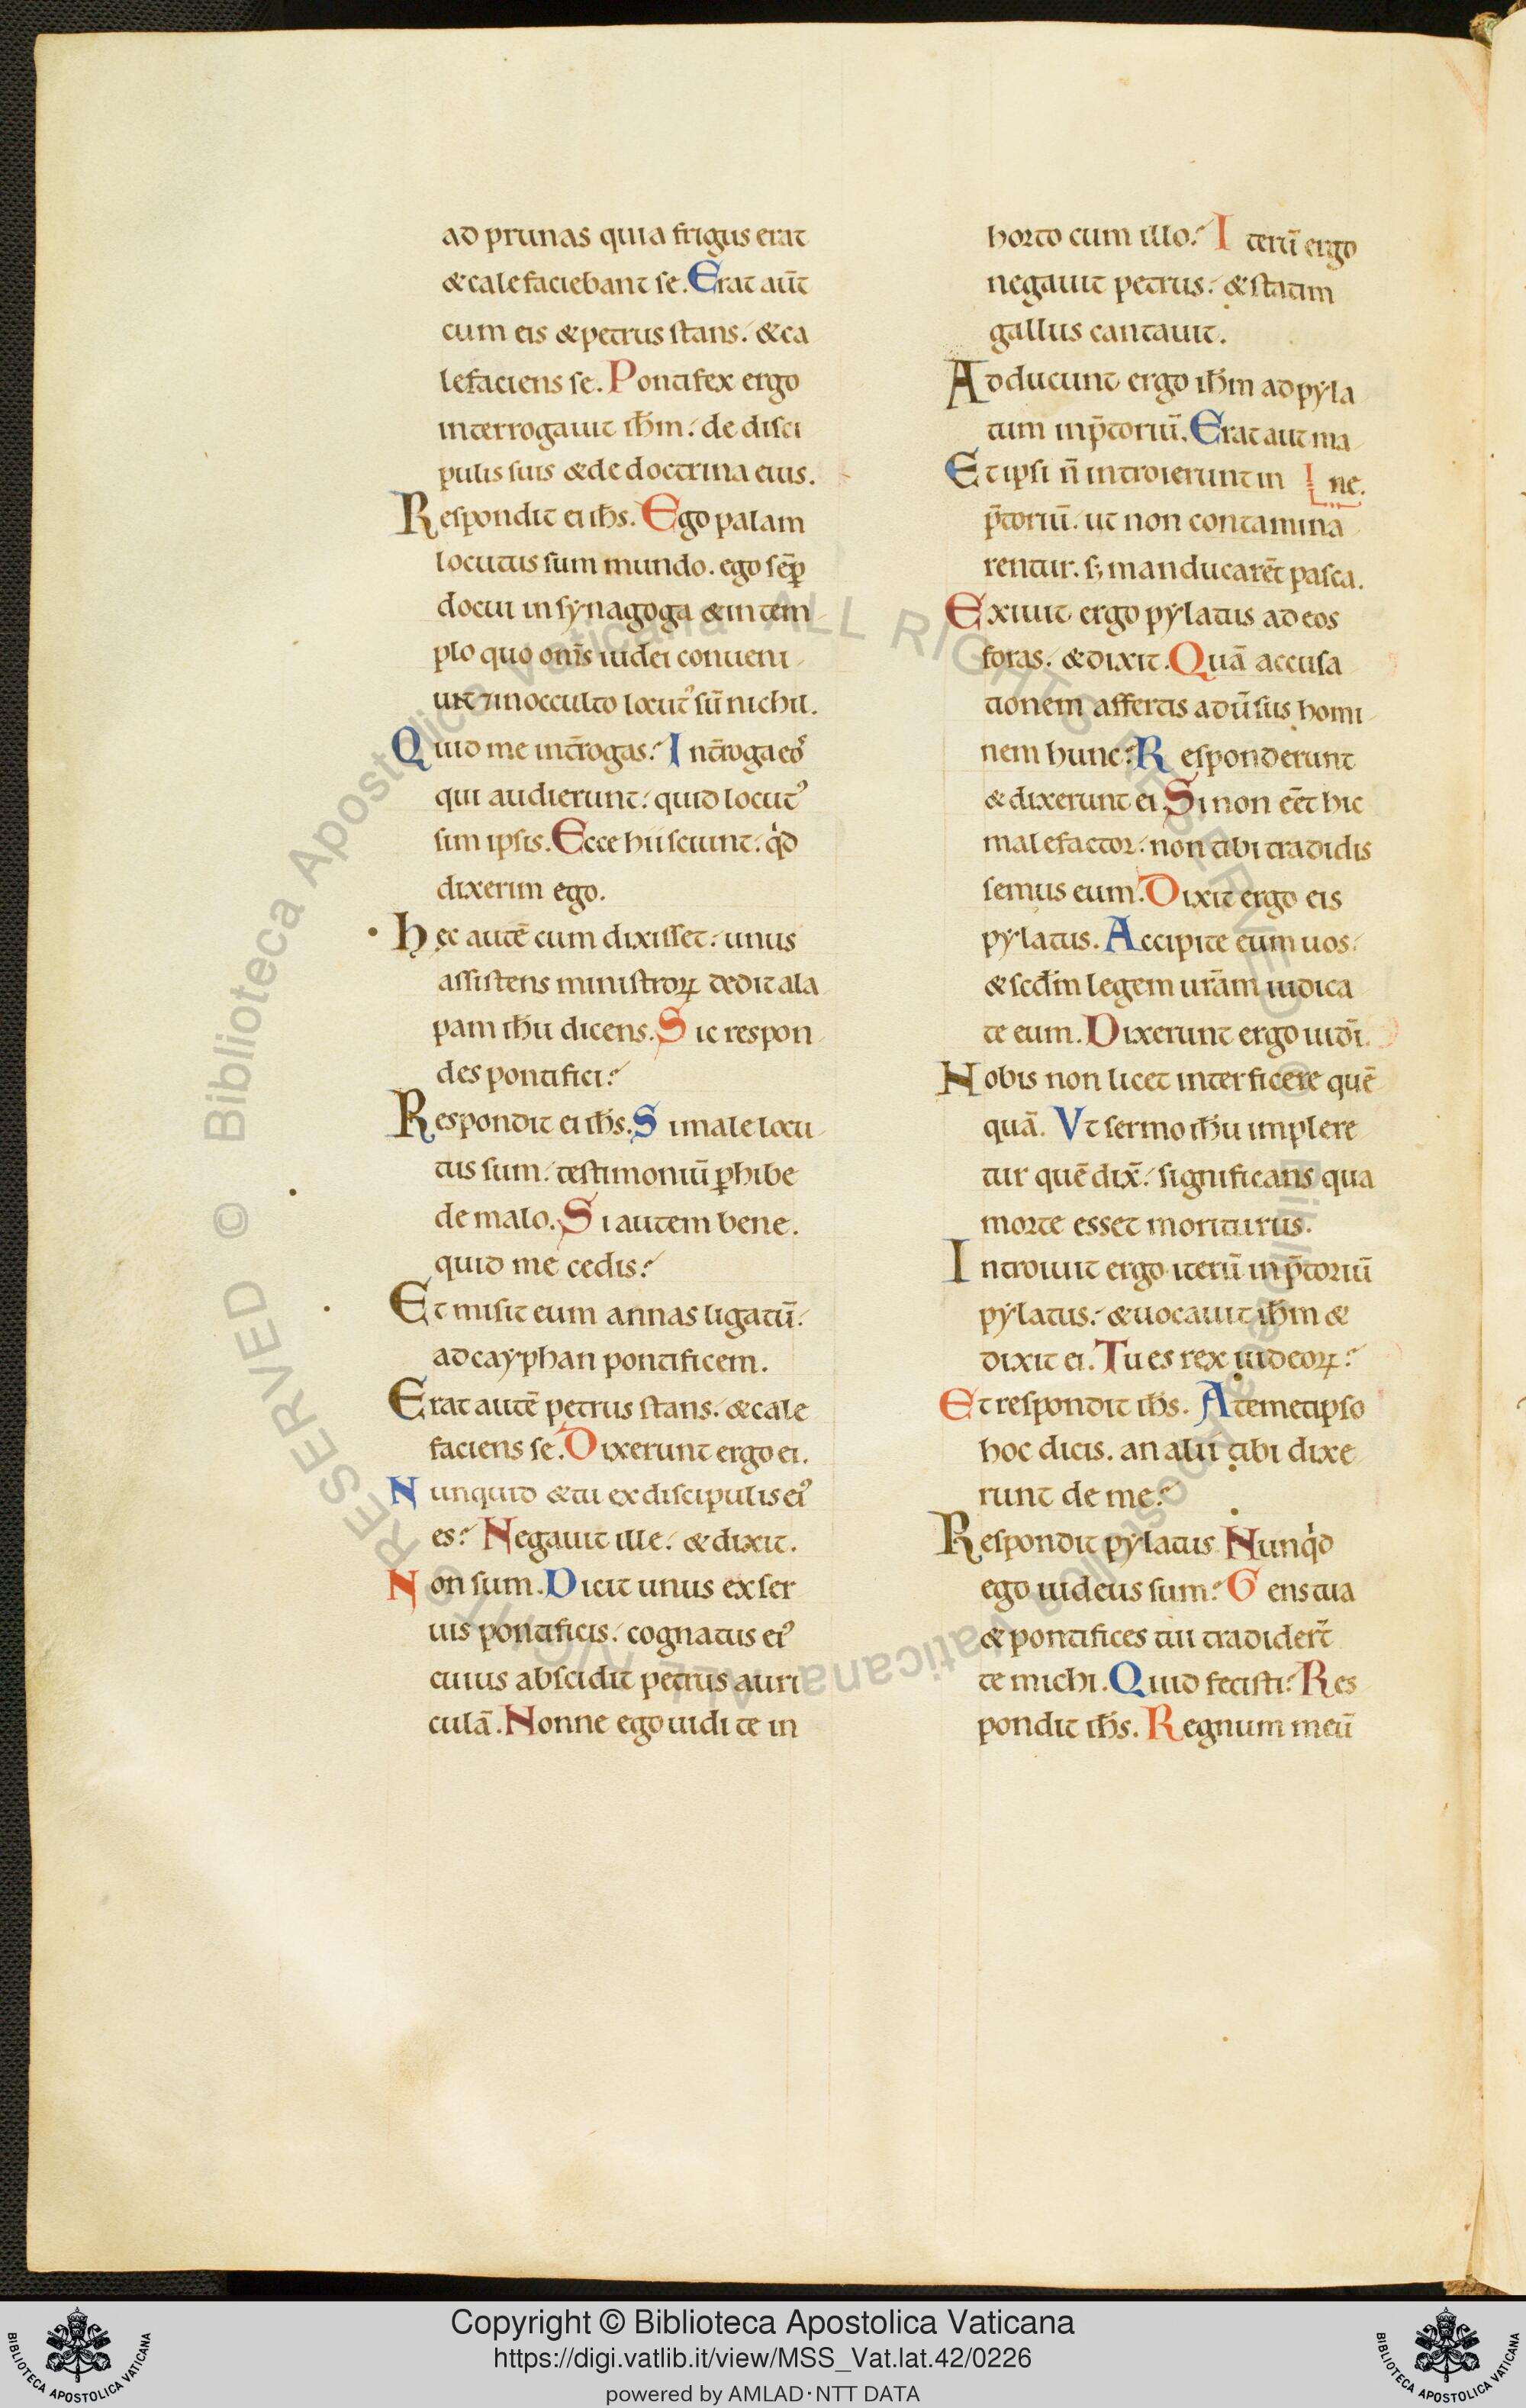 ad prunas quia frigus erat
& calefaciebant se. Erat aūt
cum eis & petrus stans. & ca
lefaciens se. Pontifex ergo
interrogauit ih̄m. de disci
pulis suis & de doctrina eius.
Respondit ei ih̄s. Ego palam
locutus sum mundo. ego sēꝑ
docui in synagoga & in tem
plo quo om̄s iudei conueni
unt ⁊ in occulto locutꝰ sū nichil.
Quid me int̄rogas? Int̄roga eos
qui audierunt. quid locutꝰ
sim ipsis. Ecce hii sciunt. qd
dixerim ego.
Hęc autē cum dixisset. unus
assistens ministroꝝ dedit ala
pam ih̄u dicens. Sic respon
des pontifici?
Respondit ei ih̄s. Si male locu
tus sum. testimoniū ꝑhibe
de malo. Si autem bene.
quid me cedis?
Et misit eum annas ligatū.
ad cayphan pontificem.
Erat autē petrus stans. & cale
faciens se. Dixerunt ergo ei.
Nunquid & tu ex discipulis eiꝰ
es? Negauit ille. & dixit.
Non sum. Dicit unus ex ser
uis pontificis. cognatus eiꝰ
cuius abscidit petrus auri
culā. Nonne ego uidi te in
horto cum illo? Iterū ergo
negauit petrus. & statim
gallus cantauit.
Adducunt ergo ih̄m ad pyla
tum in p̄toriū. Erat aut ma
Et ipsi n̄ introierunt in ne.
p̄toriū. ut non contamina
rentur. s; manducarēt pasca.
Exiuit ergo pylatus ad eos
foras. & dixit. Quā accusa
tionem affertis adūsus homi
nem hunc? Responderunt
& dixerunt ei. Si non eēt hic
malefactor. non tibi tradidis
semus eum. Dixit ergo eis
pylatus. Accipite eum uos.
& scd̄m legem ur̄am iudica
te eum. Dixerunt ergo iudi.
Nobis non licet interficere quē
quā. Vt sermo ih̄u implere
tur quē dix̄. significans qua
morte esset moriturus.
Introiuit ergo iterū in p̄toriū
pylatus. & uocauit ih̄m &
dixit ei. Tu es rex iudeoꝝ?
Et respondit ih̄s. A temetipso
hoc dicis. an alii tibi dixe
runt de me?
Respondit pylatus Nunqd
ego iudeus sum? Gens tua
& pontifices tui tradider̄t
te michi. Quid fecisti? Res
pondit ih̄s. Regnum meū
© Biblioteca Apostolica Vaticana ALL RIGHTS RESERVED © Biblioteca Apostolica Vaticana ALL RIGHTS RESERVED
Copyright © Biblioteca Apostolica Vaticana
https://digi.vatlib.it/view/MSS_Vat.lat.42/0226
powered by AMLAD·NTT DATA
BIBLIOTECA APOSTOLICA VATICANA
BIBLIOTECA APOSTOLICA VATICANA